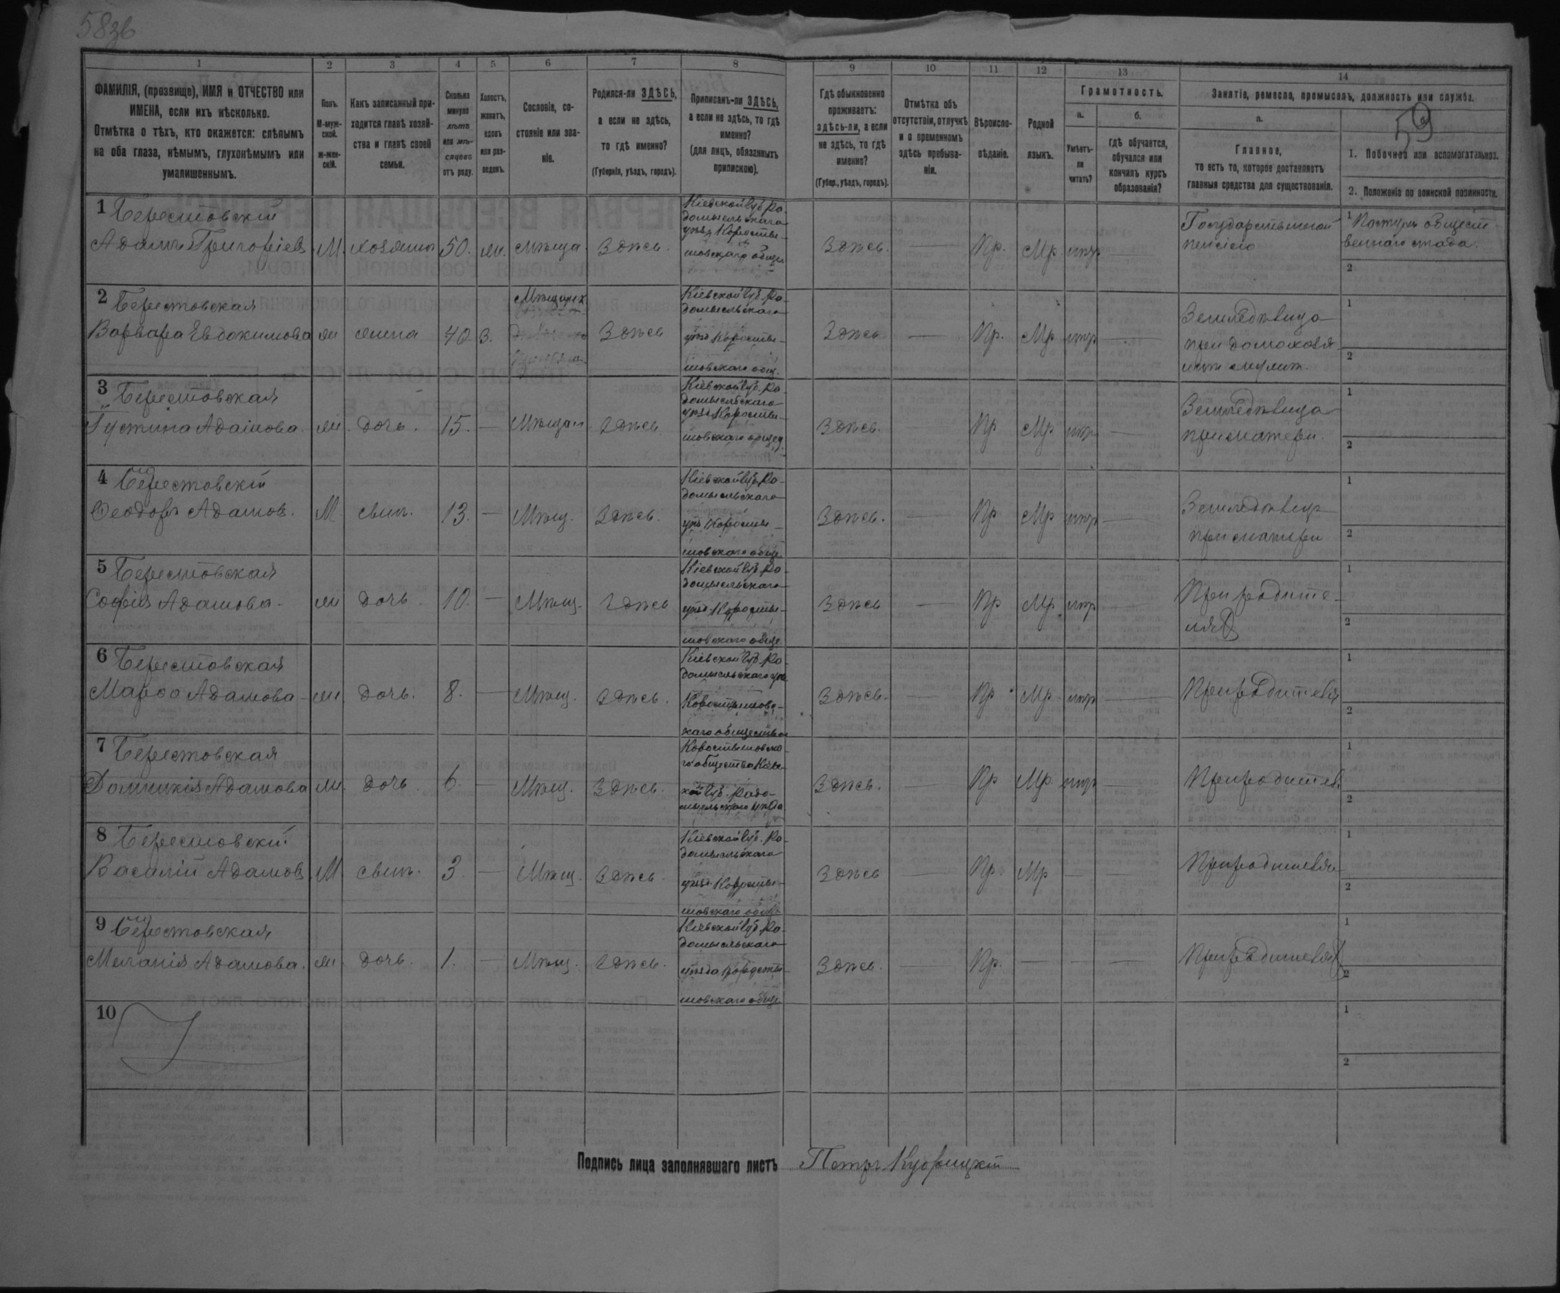 58зв
59
1
2
3
4
5
6
7
8
9
10
11
12
13
14
ФАМИЛІЯ, (прозвище), ИМЯ и ОТЧЕСТВО или
ИМЕНА, если ихъ нѣсколько.
Отмѣтка о тѣхъ, кто окажется: слѣпымъ
на оба глаза, нѣмымъ, глухонѣмымъ или
умалишеннымъ.
Полъ.
М-муж-
ской.
ж-жен-
скій.
Какъ записанный при-
ходится главѣ хозяй-
ства и главѣ своей
семьи.
Сколько
минуло
лѣтъ
или мѣ-
сяцевъ
отъ роду.
Холостъ,
женатъ,
вдовъ
или раз-
веденъ.
Сословіе, со-
стояніе или зва-
ніе.
Родился-ли ЗДѢСЬ,
а если не здѣсь,
то гдѣ именно?
(Губернія, уѣздъ, городъ).
Приписанъ-ли ЗДѢСЬ,
а если не здѣсь, то гдѣ
именно?
(для лицъ, обязанныхъ
припискою).
Гдѣ обыкновенно
проживаетъ:
здѣсь-ли, а если
не здѣсь, то гдѣ
именно?
(Губер., уѣздъ, городъ).
Отмѣтка объ
отсутствіи, отлучкѣ
и о временномъ
здѣсь пребыва-
ніи.
Вѣроиспо-
вѣданіе.
Родной
языкъ.
Грамотность.
а.
Умѣетъ-
ли
читать?
б.
гдѣ обучается,
обучался или
кончилъ курсъ
образованія?
Занятія, ремесла, промыселъ, должность или служба.
а.
Главное,
то есть то, которое доставляетъ
главныя средства для существованія.
1. Побочное или вспомогательное.
2. Положеніе по воинской повинности.
1 Берестовскій
Адамъ Григоріев М хозяинъ 50. жн. мѣща Здѣсь Здѣсь. — Пр. Мр нтр —
Кіевской губ. Ра-
домысльскаго
уѣз. Коросты-
шовскаго общес
Государственной
1
2
2 Берестовская
Варвара Евдокимова ж жена 40 з. Здѣсь Здѣсь — Пр. Мр нтр —
Кіевской губ. Ра-
домысльскаго
уѣз Коросты-
шовскаго общ.
Землѣдѣлица
1
2
3 Берестовская
Іустина Адамова ж. дочь. 15. — Мѣщан Здѣсь Здѣсь. Пр Мр нтр —
Кіевской губ. Ра-
домысльскаго
уѣз. Коросты-
шовскаго общес
Землѣдѣлица
при матери
1
2
4 Берестовскій
Ѳеодоръ Адамов. М сынъ. 13. — Мѣщ. Здѣсь. Здѣсь. — Пр Мр нтр —
Кіевской губ. Ра-
домысльскаго
уѣз Коросты-
шовскаго обще
при матери
1
2
5 Берестовская
Софія Адамова. ж дочь. 10. — Мѣщ. Здѣсь Здѣсь — Пр Мр. нтр —
Кіевской губ. Ра-
домысльскаго
уѣз Коросты-
шовскаго обще
При родите-
ляхъ
1
2
6 Берестовская
Марѳа Адамова ж дочь. 8. — Мѣщ. Здѣсь. Здѣсь. — Пр. Мр. нтр —
Кіевской губ. Ра-
домысльскаго уѣз
Коростышовс-
каго общества
При родителях
1
2
7 Берестовская
Домникія Адамова ж. дочь 6. — Мѣщ. Здѣсь. Здѣсь. — Пр Мр нтр —
Коростышовска-
го общества Кіевс-
кой губ. Радо-
мысльскаго уѣзда
При родителя
1
2
8 Берестовскій
Василій Адамов. М сынъ. 3. — Мѣщ. Здѣсь. Здѣсь — Пр. Мр — —
Кіевской губ. Ра-
домысльскаго
уѣз. Коросты-
шовскаго обще
При родителях
1
2
9 Берестовская
Меланія Адамова. ж. дочь. 1. — Мѣщ. Здѣсь. Здѣсь. — Пр. — — —
Кіевской губ. Ра-
домысльскаго
уѣзда Коросты-
шовскаго обще
При родителях
1
2
10
1
2
Подпись лица заполнявшаго листъ Петръ Кудрицкій